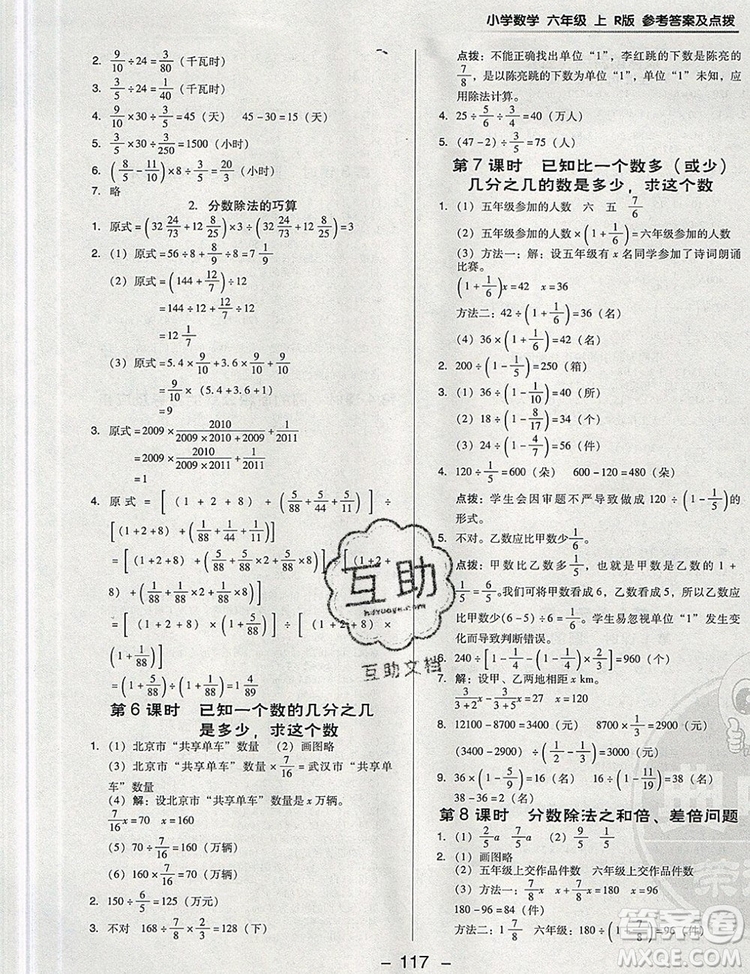 小学数学 六年级 上 R版 参考答案及点拨
2. 9/10÷24=3/80（千瓦时）
3. 3/5÷24=1/40（千瓦时）
4. 9/10×30÷3/5=45（天） 45-30=15（天）
5. 3/5×30÷3/250=1500（小时）
6. (8/5-11/10)×8÷3/5=20/3（小时）
7. 略
2. 分数除法的巧算
1. 原式=(32 24/73+12 8/25)×3÷(32 24/73+12 8/25)=3
2. （1）原式=56÷8+8/9÷8=7 1/9
（2）原式=(144+12/7)÷12
=144÷12+12/7÷12
=12 1/7
（3）原式=5.4×9/10+3.6×9/10+9/10
=9/10×（5.4+3.6+1）
=9
3. 原式=2009×2010/(2009×2010+2009)+1/2011
=2009×2010/(2009×2011)+1/2011
=2010/2011+1/2011
=1
4. 原式=[（1+2+8）+(5/88+5/44+5/11)]÷
[（1+2+8）+(1/88+1/44+1/11)]
=[（1+2+8）+(5/88+5/88×2+5/88×8)]÷[（1+2+
8）+(1/88+1/88×2+1/88×8)]
=[（1+2+8）×(1+5/88)]÷[（1+2+8）×
(1+1/88)]
=(1+5/88)÷(1+1/88)=1 4/89
第6课时 已知一个数的几分之几
是多少，求这个数
1. （1）北京市“共享单车”数量 （2）画图略
（3）北京市“共享单车”数量×7/16=武汉市“共享单
车”数量
（4）解：设北京市“共享单车”的数量是x万辆。
7/16x=70 x=160
（5）70÷7/16=160（万辆）
2. 150÷6/5=125（万辆）
3. 不对 112÷7/8=128（下）
点拨：不能正确找出单位“1”，李红跳的下数是陈亮的
7/8，是以陈亮跳的下数为单位“1”，单位“1”未知，应
用除法计算。
4. 25÷5/6÷3/4=40（万人）
5. （47-2）÷3/5=75（人）
第7课时 已知比一个数多（或少）
几分之几的数是多少，求这个数
1. （1）五年级参加的人数 六 五 7/6
（2）五年级参加的人数×(1+1/6)=六年级参加的人数
（3）方法一：解：设五年级有x名同学参加了诗词朗诵
比赛。
(1+1/6)x=42 x=36
方法二：42÷(1+1/6)=36（名）
（4）36×(1+1/6)=42（名）
2. 200÷(1-1/5)=250（箱）
3. （1）36÷(1-1/10)=40（所）
（2）18÷(1-8/17)=34（首）
（3）24÷(1-4/7)=56（件）
4. 120÷1/5=600（朵） 600-120=480（朵）
点拨：学生会因审题不严导致做成120÷(1-1/5)的
形式。
5. 不对。乙数应比甲数少1/6。
点拨：甲数比乙数多1/5，也就是甲数是乙数的
1+1/5=6/5。我们可以将甲数看成6，乙数看成5，乙数应
比甲数少（6-5）÷6=1/6。学生易忽视单位“1”发生变
化而导致判断错误。
6. 240÷[1-1/4-(1/4+1/4)]=960（个）
7. 解：设甲、乙两地相距x km。
3/(3+2)x-1/2x=30 x=300
8. 12100-8700=3400（元） 8700-5800=2900（元）
（3400-2900）÷2900=5/29
9. 36×(1-5/9)÷(1-11/19)=38（名）
38-36=2（名）
第8课时 分数除法之和倍、差倍问题
1. （1）2/5a 7/5a （2）9/5 1/5
2. （1）画图略
（2）五年级上交作品件数 六年级上交作品件数
（3）方法一：解：设六年级上交了x件。
x+7/8x=180 x=96
180-96=84（件）
方法二：1 7/8 六年级：180÷(1+7/8)=96（件）
互助
hdzuoye.com
互助文档
答案圈
MXQE.COM
- 117 -